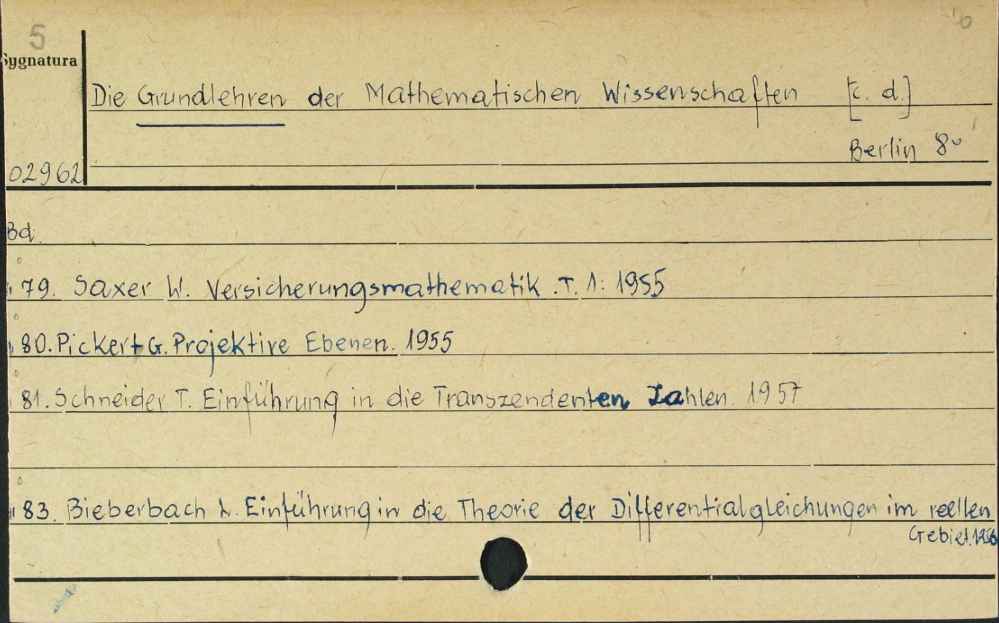 5
Sygnatura
Die Grundlehren der Mathematischen Wissenschaften [c. d.]
Berlin 8°
02962
Bd.
" 79. Saxer W. Versicherungsmathematik . T. 1: 1955
" 80. Pickert G. Projektive Ebenen. 1955
" 81. Schneider T. Einführung in die Transzendenten Zahlen. 1957
" 83. Bieberbach L. Einführung in die Theorie der Differentialgleichungen im reellen
Gebiet.